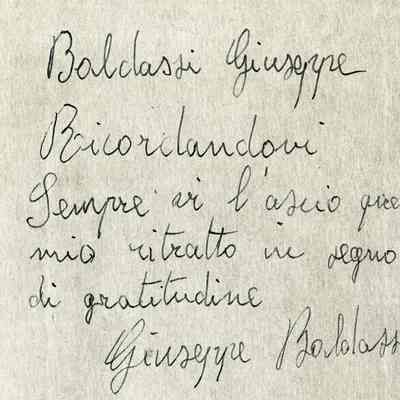 Baldassi Giuseppe
Ricordandovi
Sempre vi l'ascio que
mio ritratto in segno
di gratitudine
Giuseppe Baldass